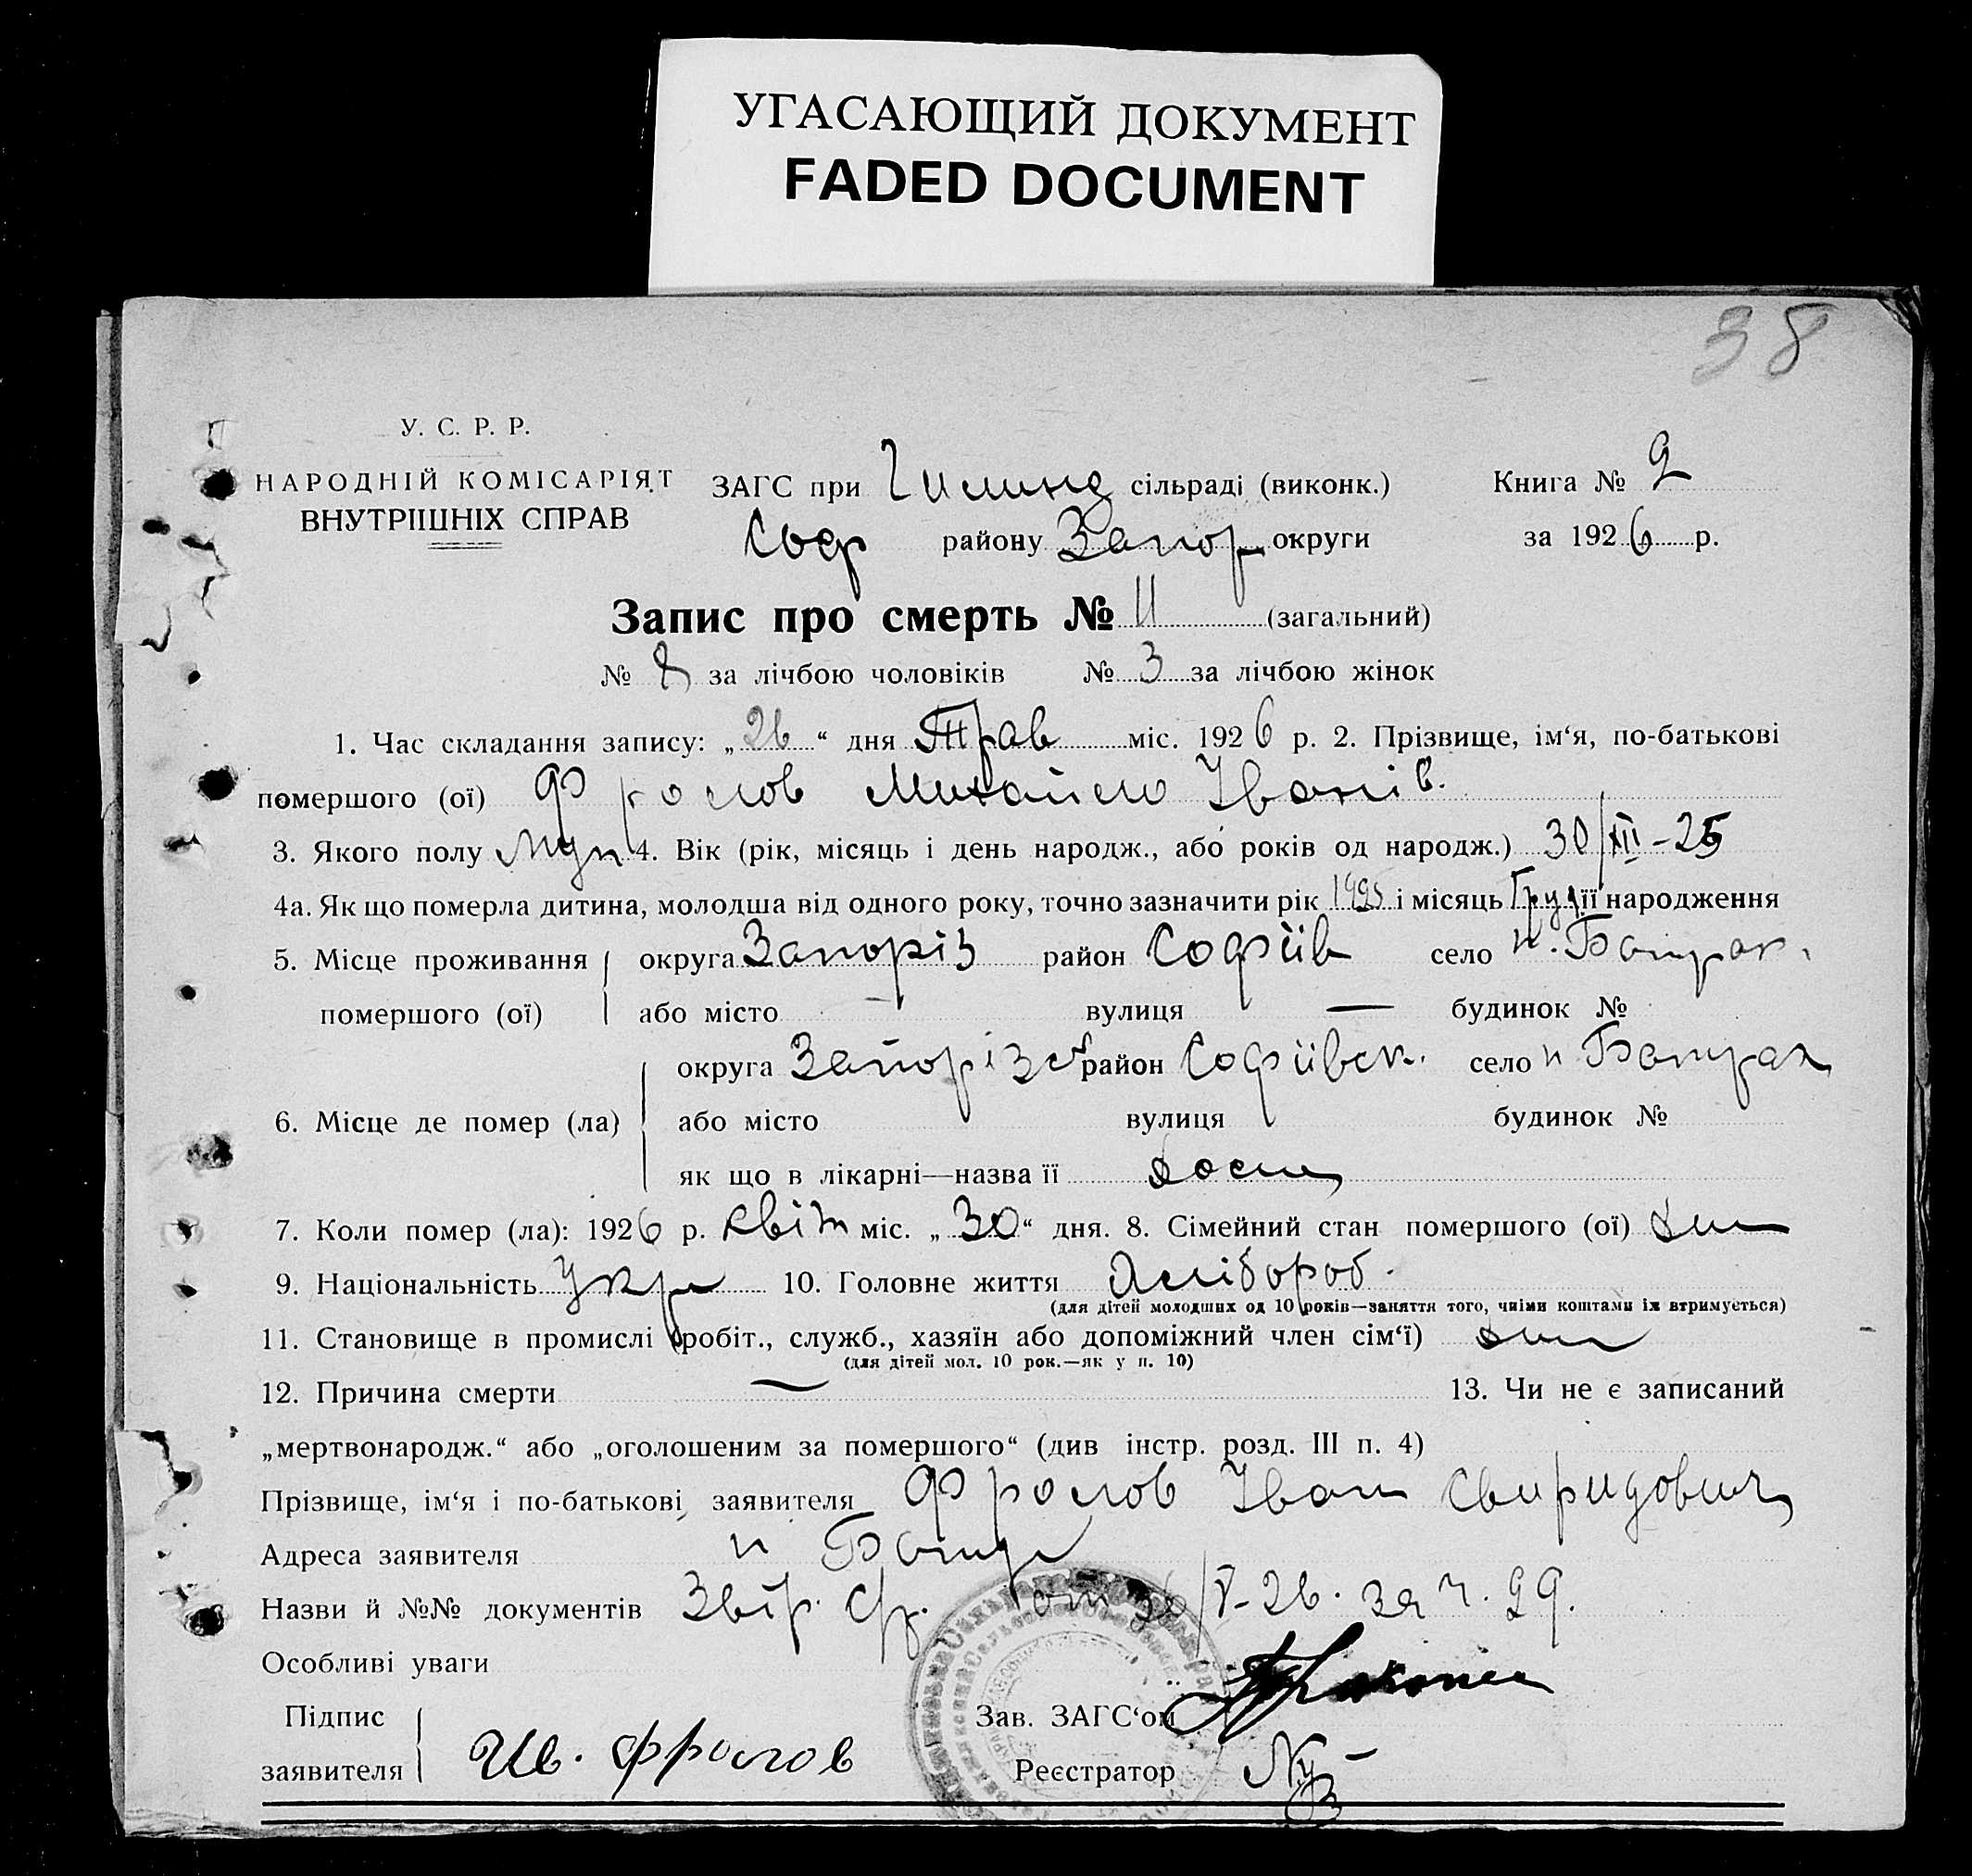 УГАСАЮЩИЙ ДОКУМЕНТ
FADED DOCUMENT
38
У. С. Р. Р.
НАРОДНІЙ КОМІСАРІЯТ
ВНУТРІШНІХ СПРАВ
ЗАГС при сільраді (виконк.)
Соф району Запор округи
Книга № 2
за 1926 р.
Запис про смерть № 11 (загальний)
№ 8 за лічбою чоловіків № 3 за лічбою жінок
1. Час складання запису: „26“ дня Трав міс. 1926 р. 2. Прізвище, ім‘я, по-батькові
помершого (ої) Фролов Михайло Іванів.
3. Якого полу Муж 4. Вік (рік, місяць і день народж., або років од народж.) 30/XII-25
4а. Як що померла дитина, молодша від одного року, точно зазначити рік 1925 і місяць Груд її народження
5. Місце проживання округа Запоріз район Софіїв село п. Батрак.
помершого (ої) або місто — вулиця — будинок №
округа Запорізьк район Софіївск. село п Батрак
6. Місце де помер (ла) або місто вулиця будинок №
як що в лікарні—назва її
7. Коли помер (ла): 1926 р. квіт міс. „30“ дня. 8. Сімейний стан помершого (ої)
9. Національність Укр 10. Головне життя Хлібороб.
(для дітей молодших од 10 років—заняття того, чиїми коштами їх втримується)
11. Становище в промислі (робіт., служб., хазяїн або допоміжний член сім‘ї)
(для дітей мол. 10 рок.—як у п. 10)
12. Причина смерти — 13. Чи не є записаний
„мертвонародж.“ або „оголошеним за помершого“ (див інстр. розд. III п. 4)
Прізвище, ім‘я і по-батькові заявителя Фролов Іван Свиридович
Адреса заявителя п Батр
Назви й №№ документів от /V-26. за ч. 99.
Особливі уваги
Підпис
заявителя Ив. Фролов
Зав. ЗАГС‘ом
Реєстратор